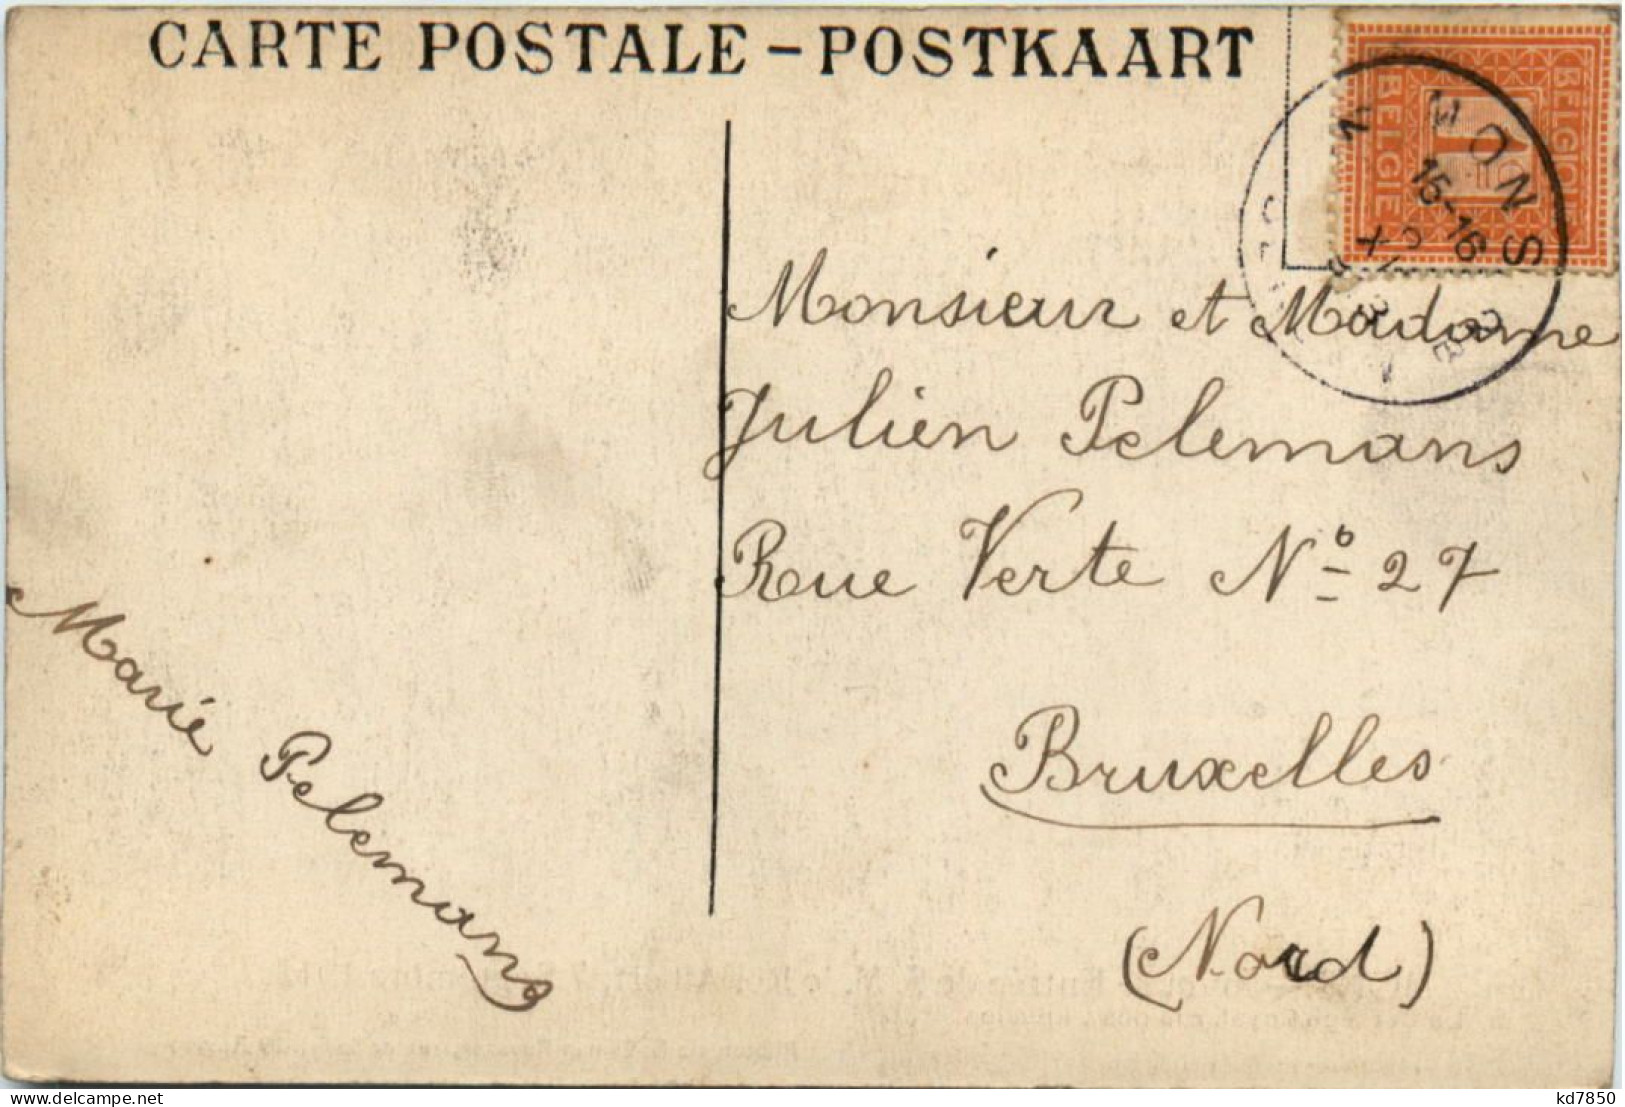 CARTE POSTALE - POSTKAART
BELGIQUE
BELGIE
1
MONS
15-16
Monsieur et Madame
Julien Pelemans
Rue Verte Nº 27
Bruxelles
(Nord)
Marie Pelemans
kd7850